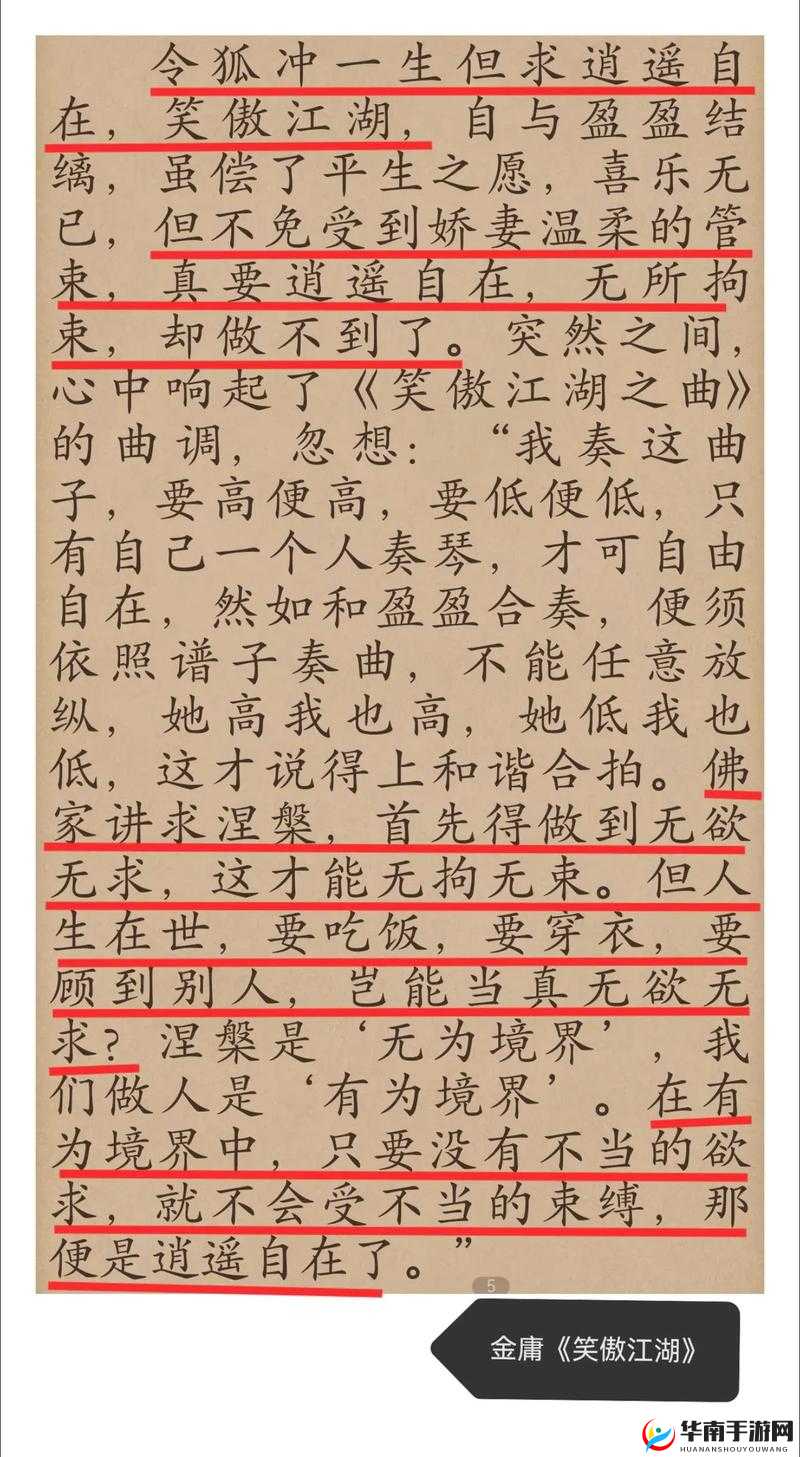 令狐冲一生但求逍遥自
在，笑傲江湖，自与盈盈结
缡，虽偿了平生之愿，喜乐无
已，但不免受到娇妻温柔的管
束，真要逍遥自在，无所拘
束，却做不到了。突然之间，
心中响起了《笑傲江湖之曲》
的曲调，忽想：“我奏这曲
子，要高便高，要低便低，只
有自己一个人奏琴，才可自由
自在，然如和盈盈合奏，便须
依照谱子奏曲，不能任意放
纵，她高我也高，她低我也
低，这才说得上和谐合拍。佛
家讲求涅槃，首先得做到无欲
无求，这才能无拘无束。但人
生在世，要吃饭，要穿衣，要
顾到别人，岂能当真无欲无
求？涅槃是‘无为境界’，我
们做人是‘有为境界’。在有
为境界中，只要没有不当的欲
求，就不会受不当的束缚，那
便是逍遥自在了。”
5
金庸《笑傲江湖》
华南手游网
HUANANSHOUYOUWANG